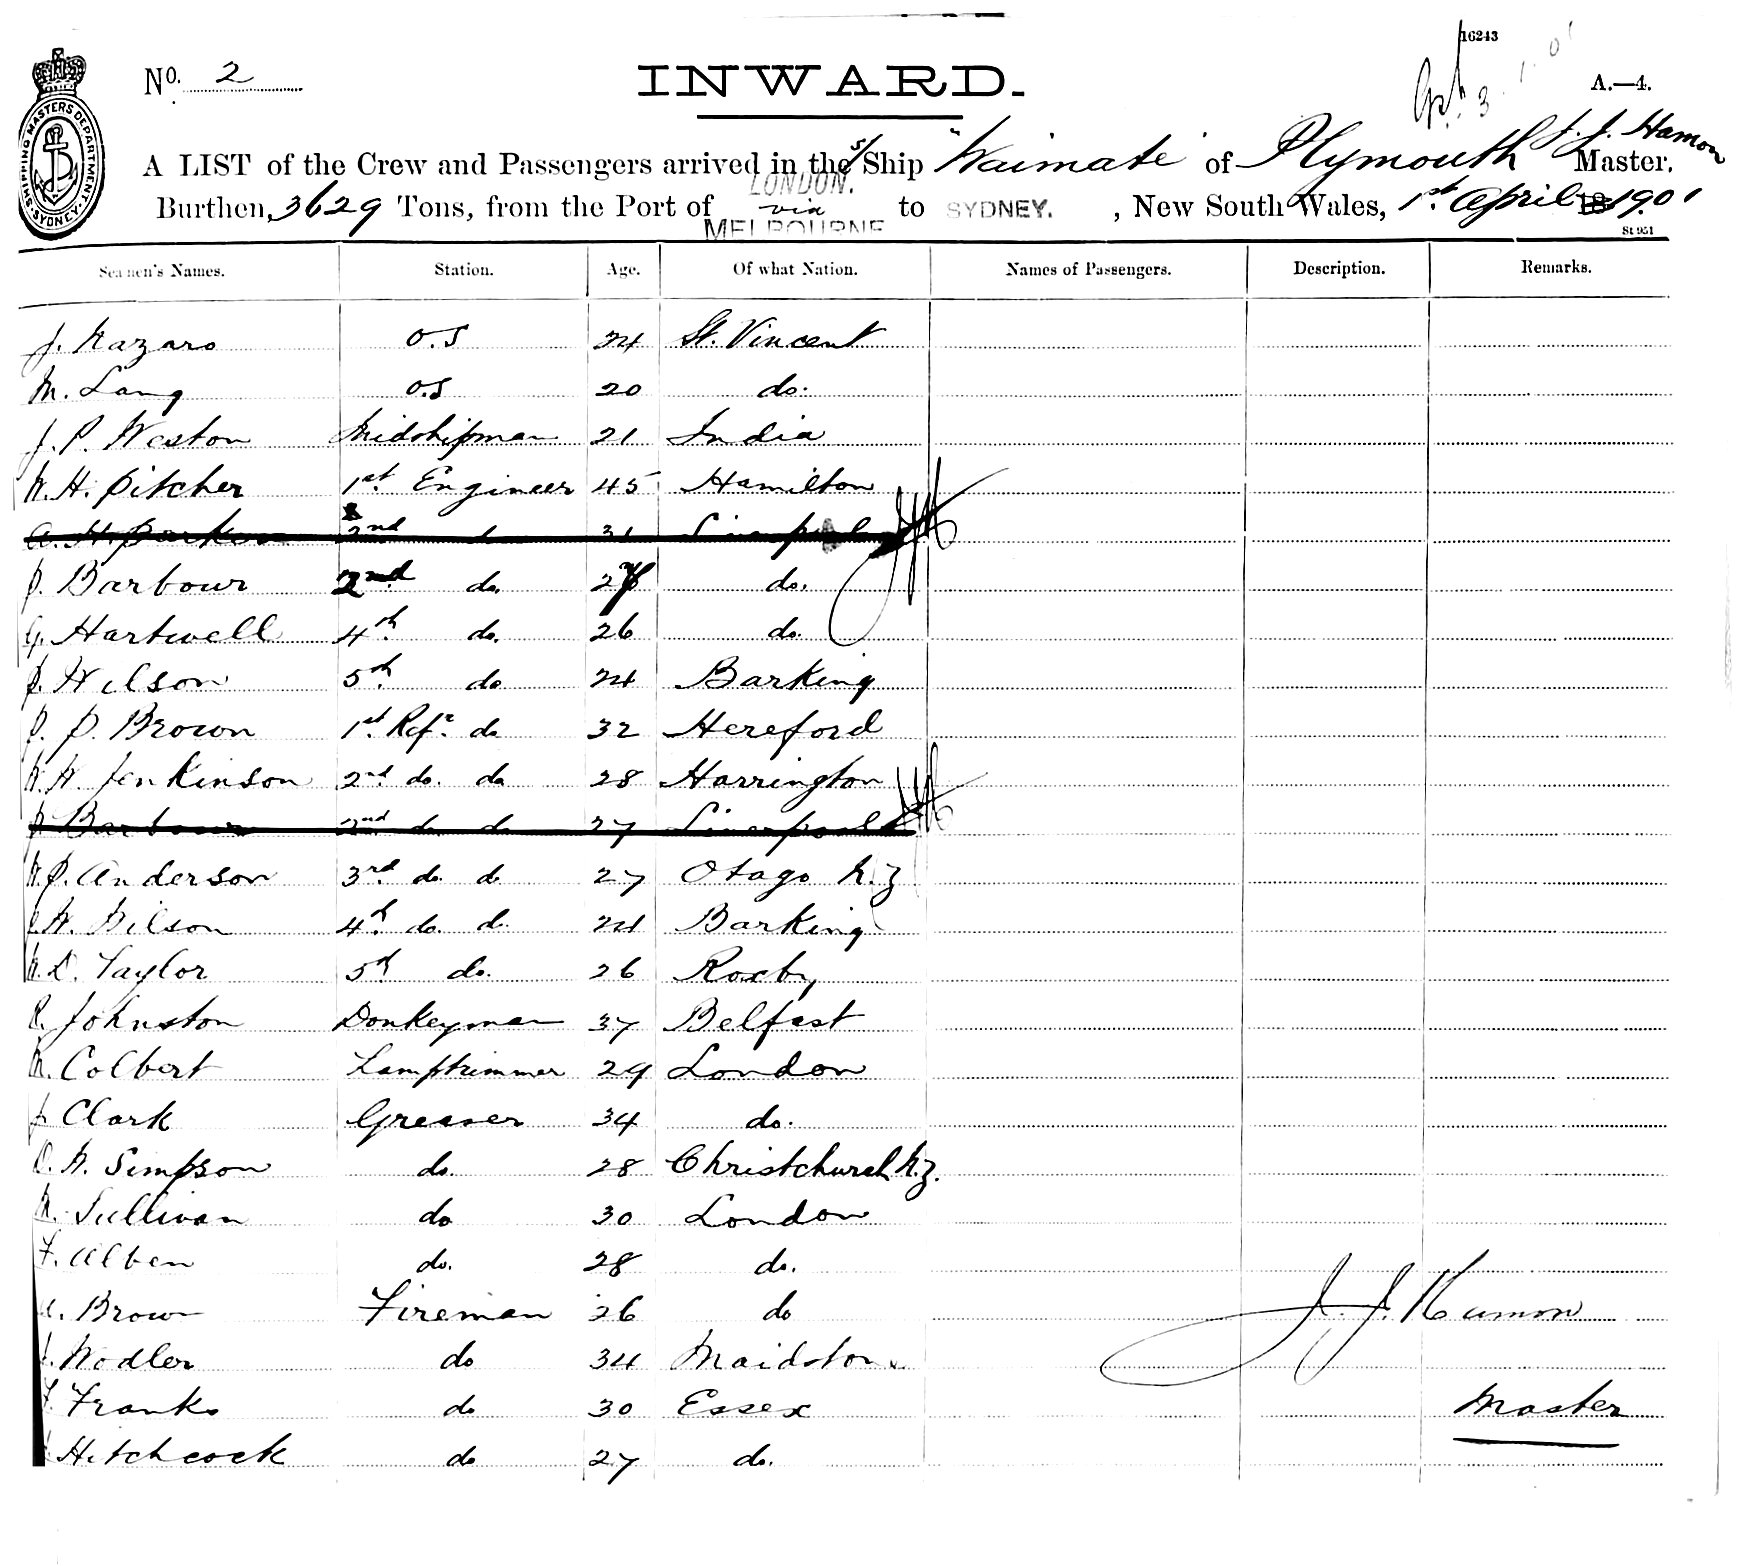 16243
No. 2
INWARD.
A.—4.
SHIPPING MASTERS DEPARTMENT. SYDNEY.
J. J. Hamon
A LIST of the Crew and Passengers arrived in the s/Ship "Waimate" of Plymouth Master.
LONDON.
Burthen, 3629 Tons, from the Port of via to SYDNEY. , New South Wales, 1st April 1901
MELBOURNE
St 951
Seamen's Names. Station. Age. Of what Nation. Names of Passengers. Description. Remarks.
J. Nazaro O.S 24 St. Vincent
M. Lang O.S 20 do.
J. P. Weston Midshipman 21 India
W. H. Pitcher 1st Engineer 45 Hamilton
A. H. Parker 2nd do 31 Liverpool
J. Barbour 2nd do. 27 do.
G. Hartwell 4th do. 26 do.
J. Wilson 5th do 24 Barking
J. P. Brown 1st Refr. do 32 Hereford
W. W. Jenkinson 2nd do. do 28 Harrington
J. Barbour 2nd do do 27 Liverpool
W. J. Anderson 3rd do. do 27 Otago N.Z
W. Wilson 4th do. do. 24 Barking
D. Taylor 5th do. 26 Roxby
Johnston Donkeyman 37 Belfast
M. Colbert Lamptrimmer 29 London
J. Clark Greaser 34 do.
W. Simpson do. 28 Christchurch N.Z.
Sullivan do 30 London
F. Alben do. 28 do.
A. Brown Fireman 26 do
Nodler do 34 Maidstone
F. Franks do 30 Essex
Hitchcock do 27 do.
J. J. Hamon
Master